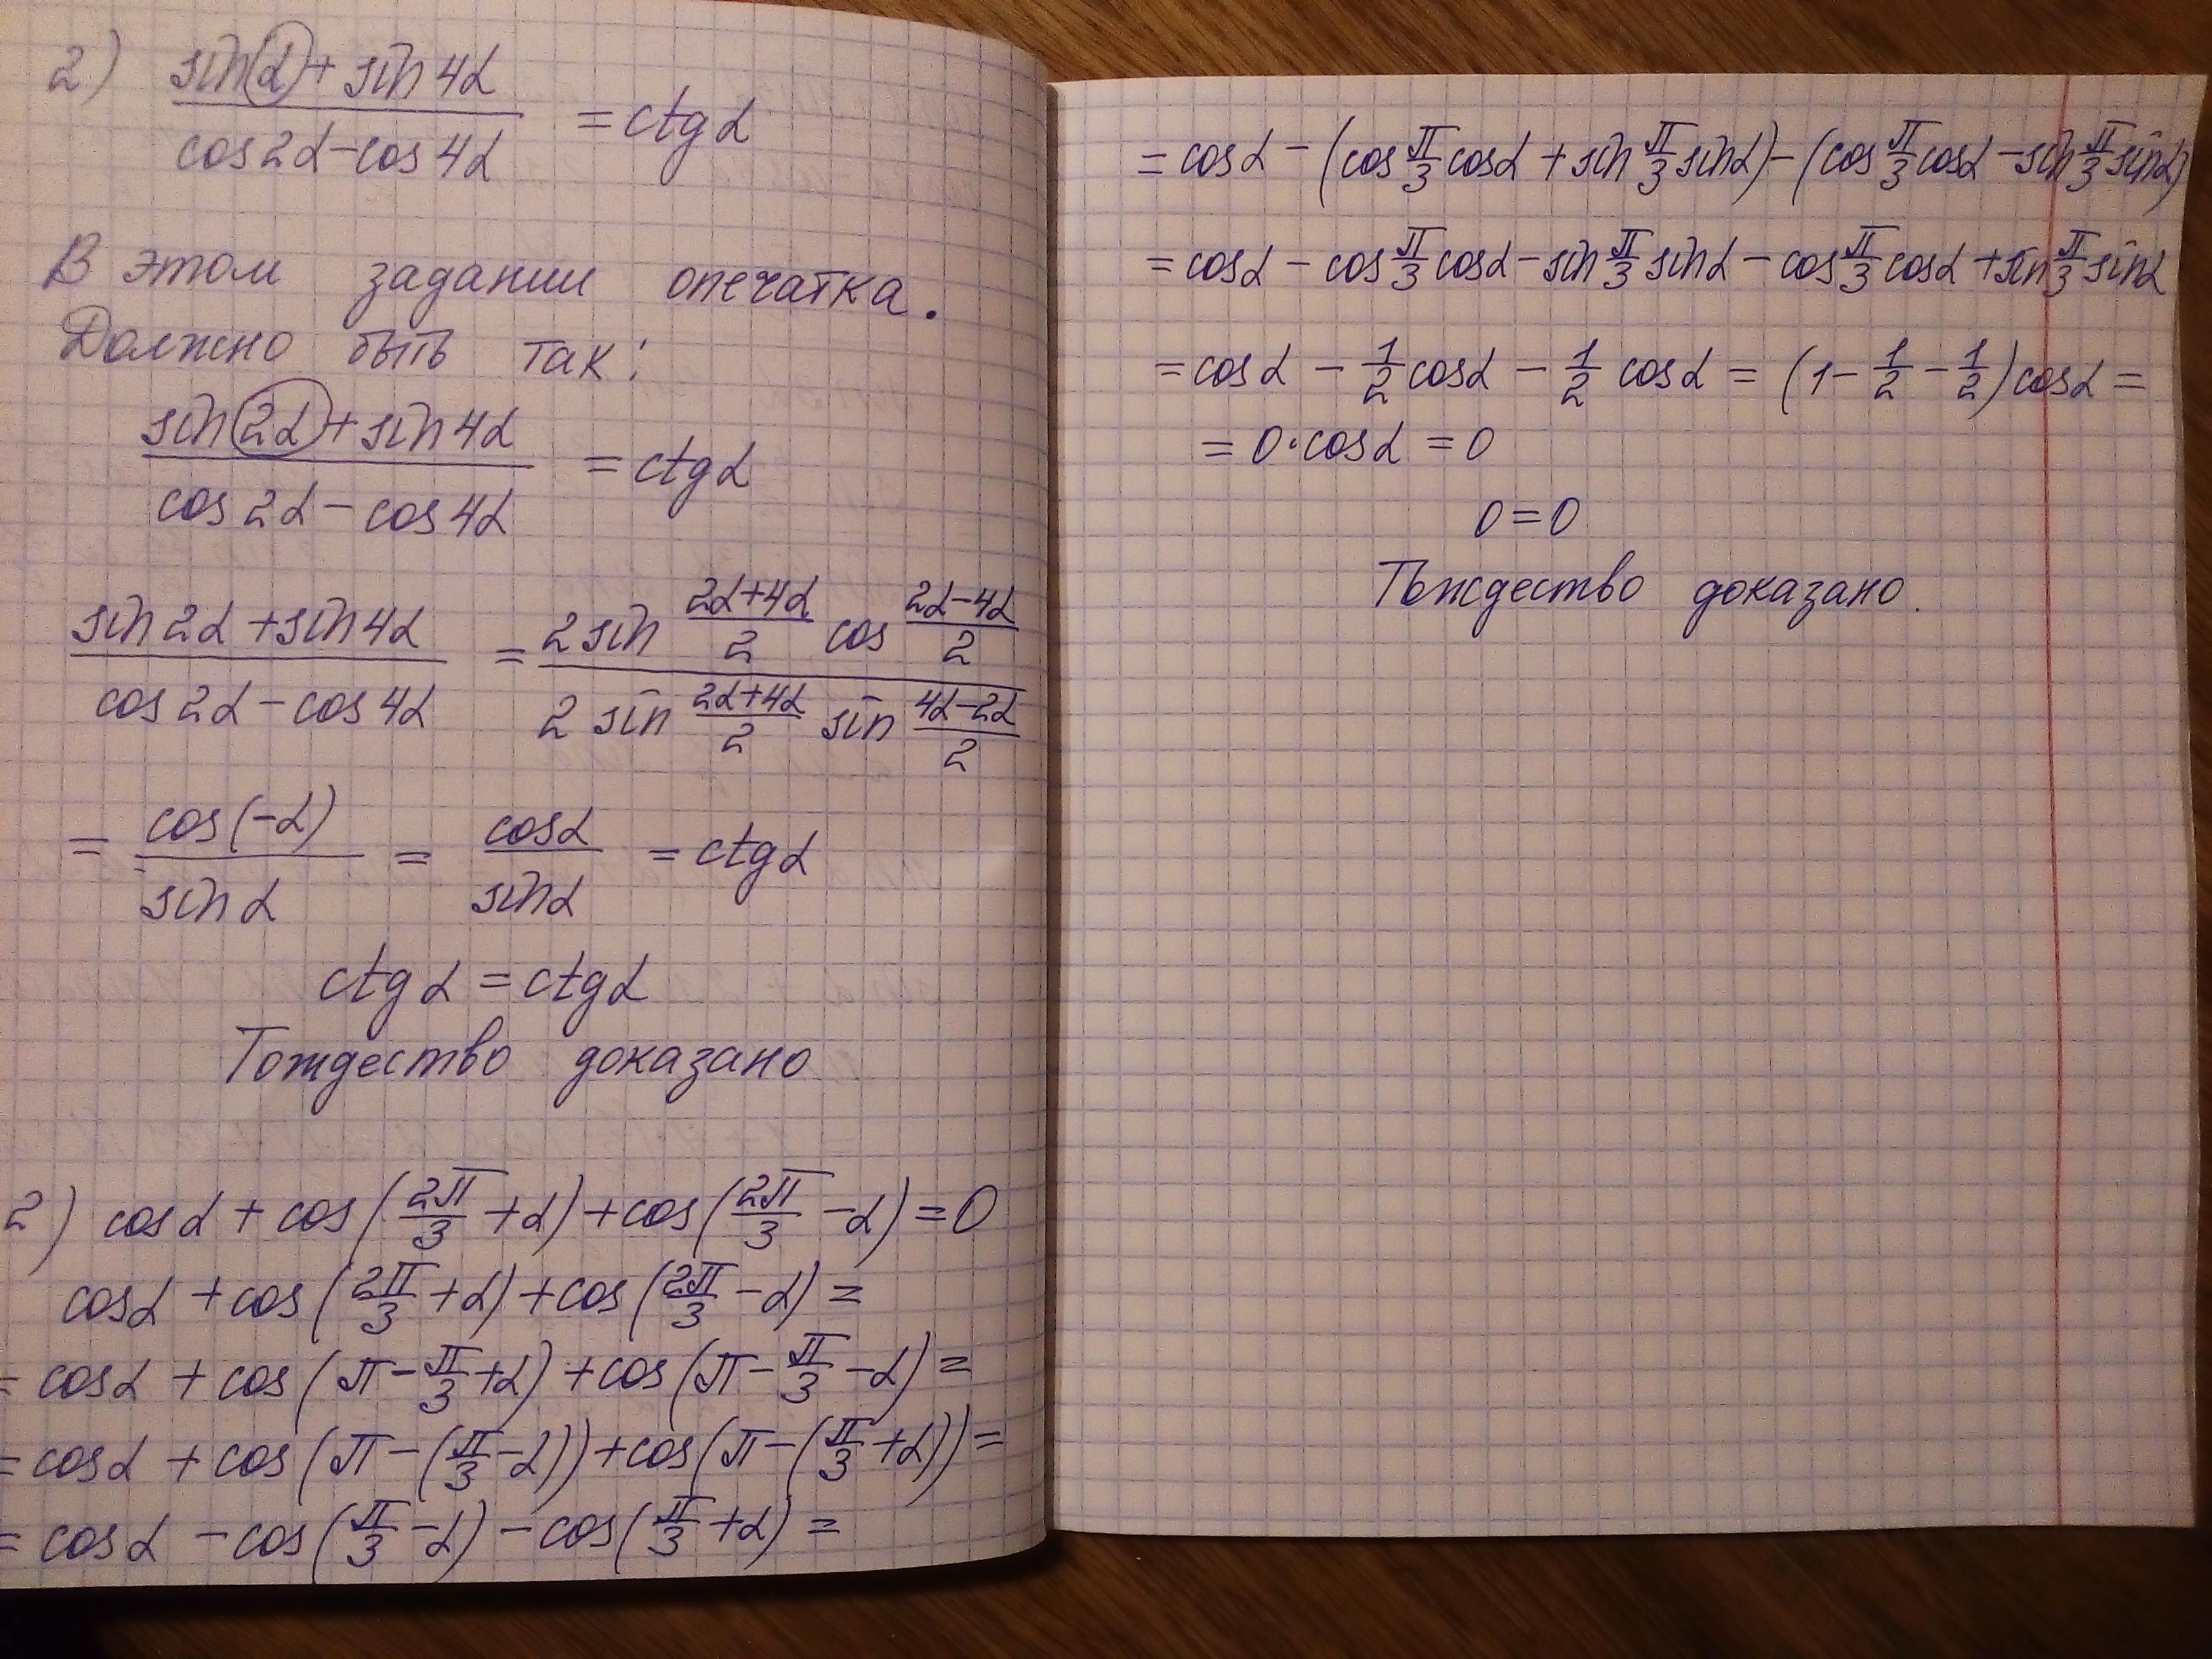 2) (sin α + sin 4α)/(cos 2α − cos 4α) = ctg α
В этом задании опечатка.
Должно быть так:
(sin 2α + sin 4α)/(cos 2α − cos 4α) = ctg α
(sin 2α + sin 4α)/(cos 2α − cos 4α) = (2 sin (2α+4α)/2 cos (2α−4α)/2)/(2 sin (2α+4α)/2 sin (4α−2α)/2)
= cos(−α)/sin α = cos α/sin α = ctg α
ctg α = ctg α
Тождество доказано
2) cos α + cos(2π/3 + α) + cos(2π/3 − α) = 0
cos α + cos(2π/3 + α) + cos(2π/3 − α) =
= cos α + cos(π − π/3 + α) + cos(π − π/3 − α) =
= cos α + cos(π − (π/3 − α)) + cos(π − (π/3 + α)) =
= cos α − cos(π/3 − α) − cos(π/3 + α) =
= cos α − (cos π/3 cos α + sin π/3 sin α) − (cos π/3 cos α − sin π/3 sin α)
= cos α − cos π/3 cos α − sin π/3 sin α − cos π/3 cos α + sin π/3 sin α
= cos α − 1/2 cos α − 1/2 cos α = (1 − 1/2 − 1/2) cos α =
= 0 · cos α = 0
0 = 0
Тождество доказано.